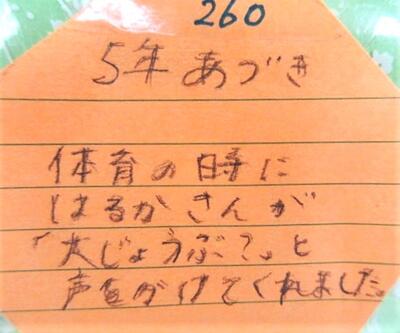 260
5年 あづき
体育の時に
はるかさんが
「大じょうぶ?」と
声をがけてくれました。